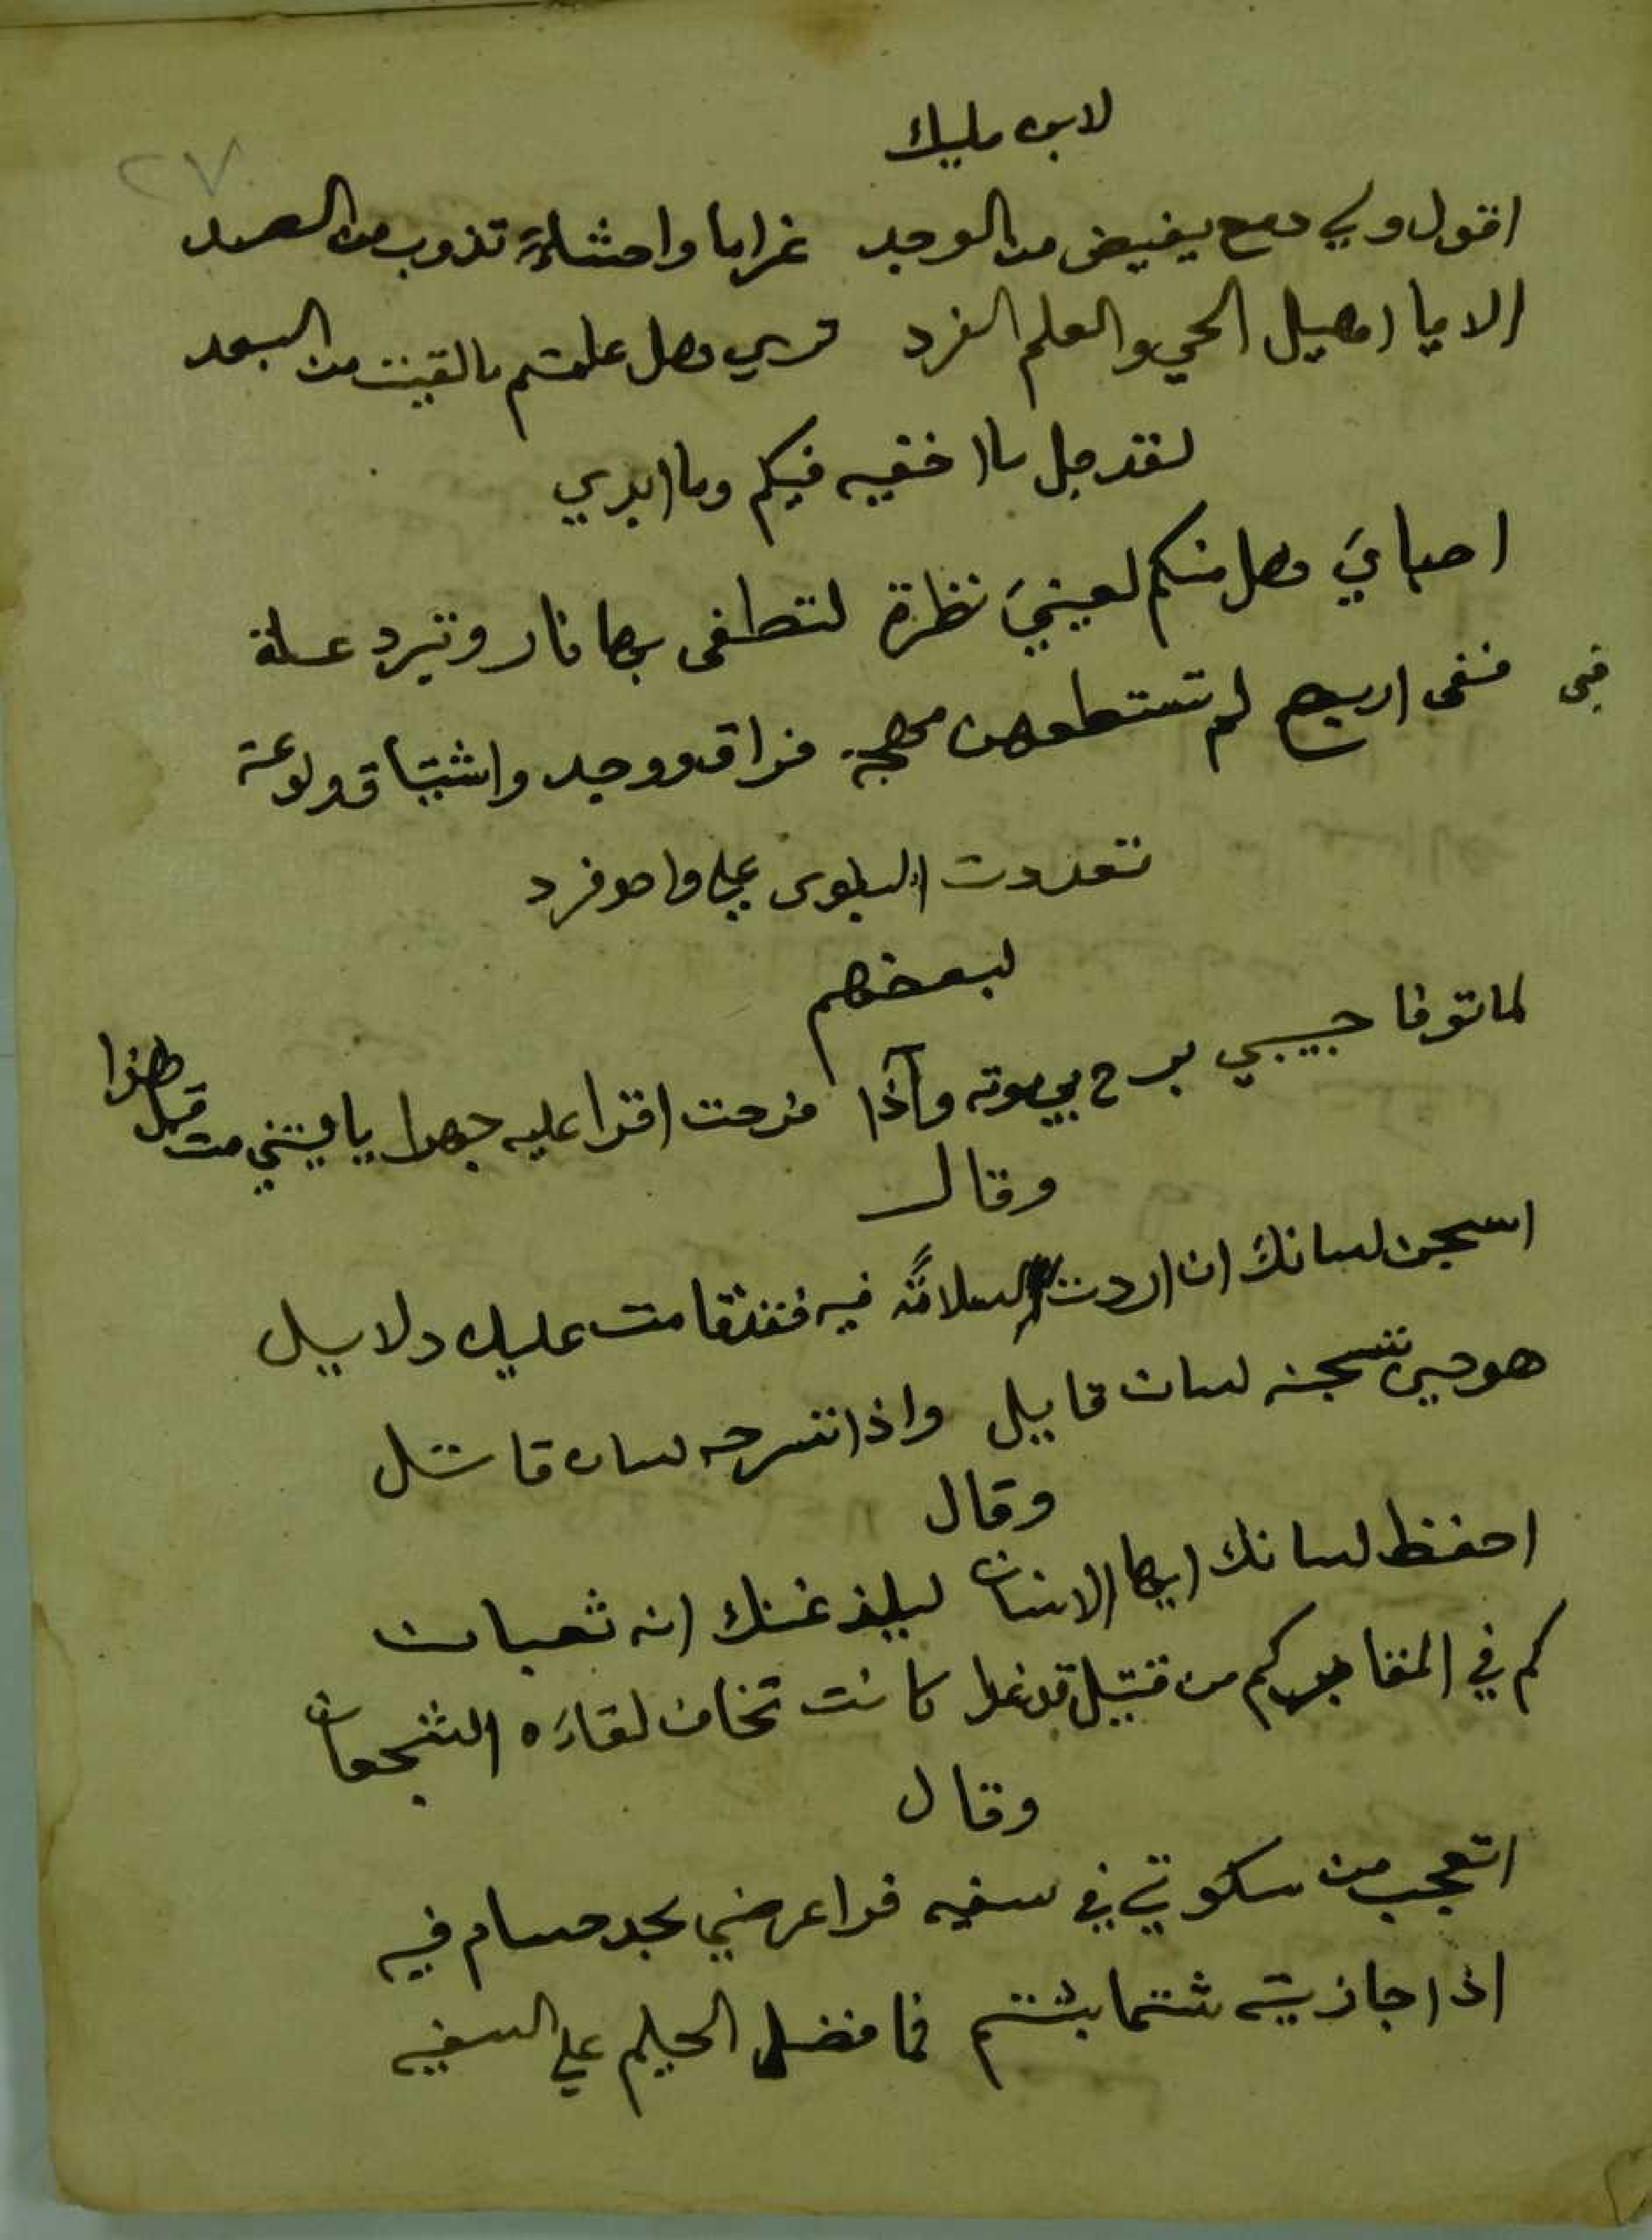 لابن مليك
٢٧
اقول ولي دمع يفيض من الوجد غراما واحشاء تذوب من الصد
الا يا اهيل الحي والعلم الفرد تري هل علمتم ما لقيت من البعد
لقد جل ما اخفيه فيكم وما ابدي
احباي هل منكم لعيني نظرة لتطفى بها نار وتبرد علة
فنفى اربع لم تستطعهن مهجة فراق ووجد واشتياق ولوعة
فى
تعددت البلوى علي واحد فرد
لبعضهم
لما توفا حبيبي برح بي موته وآذا
فرحت اقرا عليه جهرا يا ليتني مت قبل هذا
وقال
اسجن لسانك ان اردت السلامة فيه فقد قامت عليك دلايل
هو حين تسجنه لسان قايل واذا تسرحه لسان قاتل
وقال
احفظ لسانك ايها الانسان ليلدغنك انه ثعبان
كم في المقابر كم من قتيل قد غدا كانت تخاف لقاءه الشجعان
وقال
اتعجب من سكوتي في سفيه فرا عرضي بحد حسام فيه
اذا جازيته شتما بشتم فما فضل الحليم علي السفيه